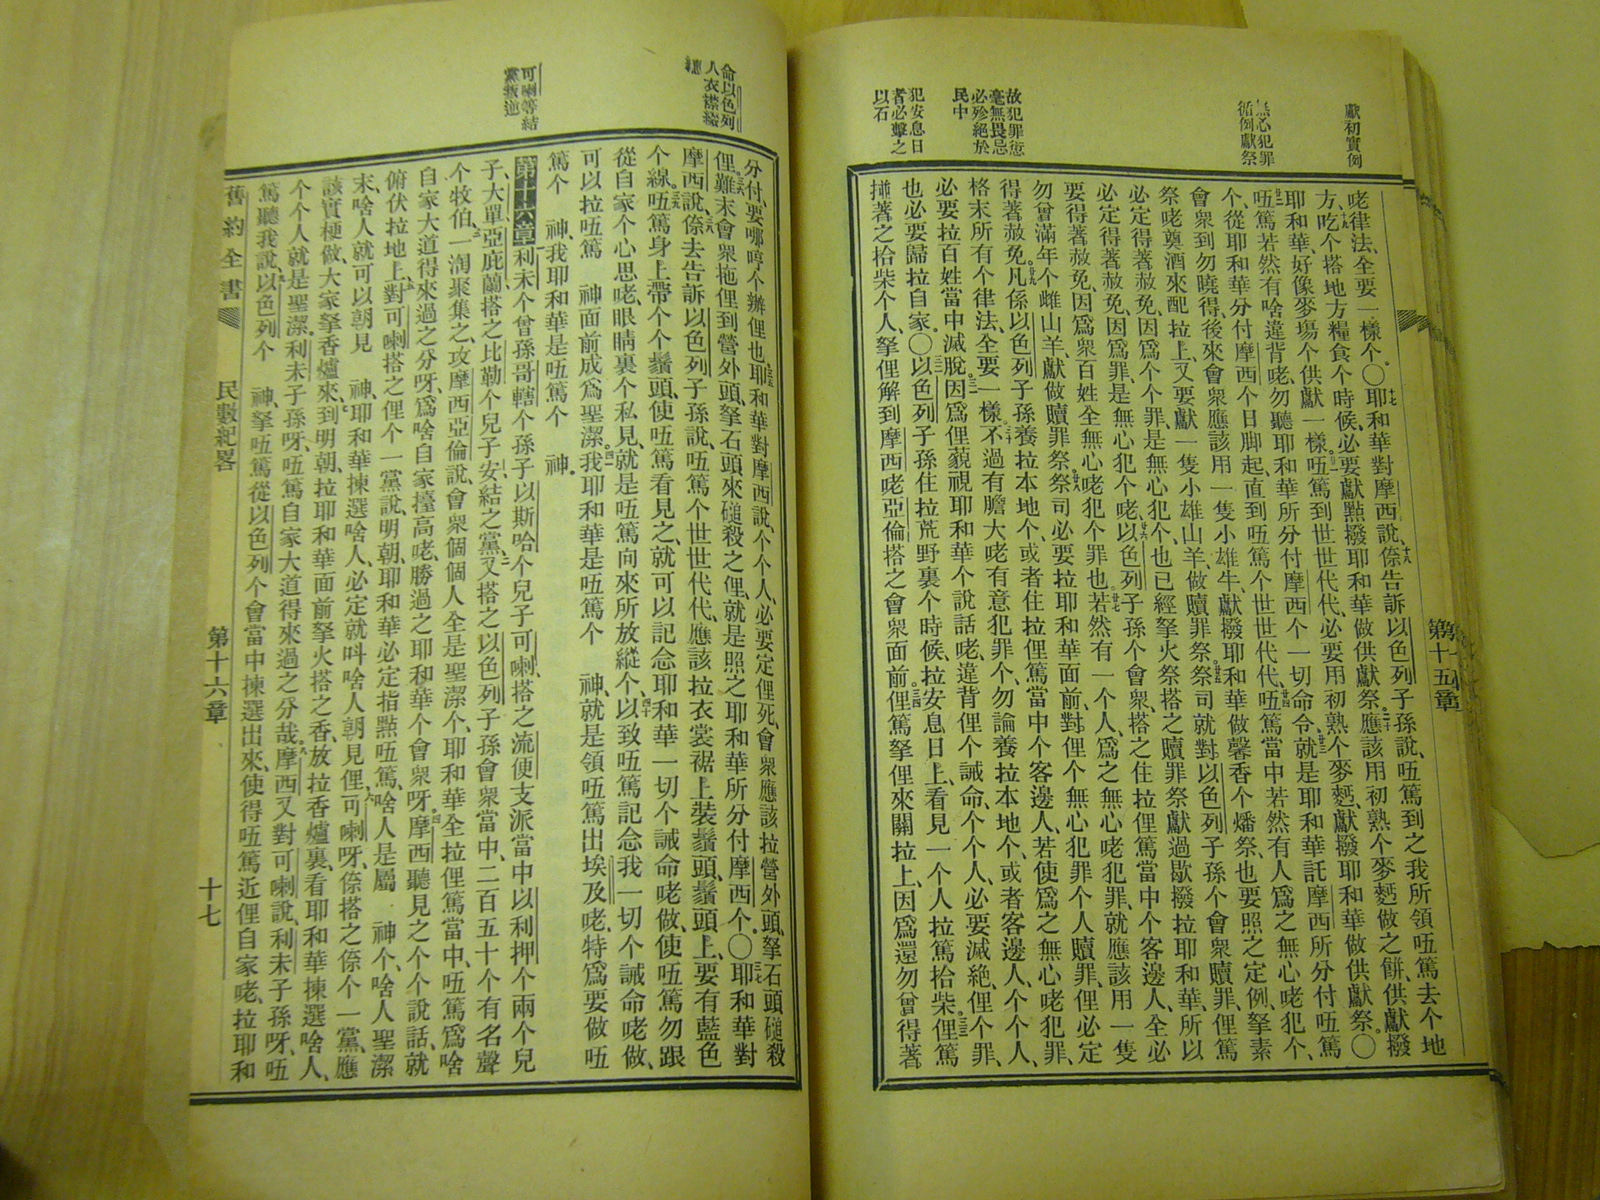 獻初實例
無心犯罪
循倒獻祭
故犯罪惡
毫無畏忌
必殄絕於
民中
犯安息日
者必擊之
以石
第十五章
咾律法、全要一樣个。〇耶和華對摩西說、㑚告訴以色列子孫說、㕶篤到之我所領㕶篤去个地
方、吃个搭地方糧食个時候、必要獻點撥耶和華做供獻祭、應該用初熟个麥麪做之餅、供獻撥
耶和華、好像麥場个供獻一樣。㕶篤到世世代代、必要用初熟个麥麪、獻撥耶和華做供獻祭。〇
㕶篤若然有啥違背咾、勿聽耶和華所分付摩西个一切命令、就是耶和華託摩西所分付㕶篤
个、從耶和華分付摩西个日脚起、直到㕶篤个世世代代、㕶篤當中若然有人爲之無心咾犯个、
會衆到勿曉得、後來會衆應該用一隻小雄牛、獻撥耶和華做馨香个燔祭、也要照之定例、拏素
祭咾奠酒來配拉上、又要獻一隻小雄山羊、做贖罪祭。祭司就對以色列子孫个會衆贖罪、俚篤
必定得著赦免、因爲个个罪、是無心犯个、也已經拏火祭搭之贖罪祭獻過歇撥拉耶和華、所以
必定得著赦免、因爲罪是無心犯个咾。以色列子孫个會衆、搭之住拉俚篤當中个客邊人、全必
要得著赦免、因爲衆百姓全無心咾犯个罪也。若然有一个人、爲之無心咾犯罪、就應該用一隻
勿曾滿年个雌山羊、獻做贖罪祭。祭司必要拉耶和華面前、對俚个無心犯罪个人贖罪、俚必定
得著赦免。凡係以色列子孫養拉本地个、或者住拉俚篤當中个客邊人、若使爲之無心咾犯罪、
格末所有个律法、全要一樣。不過有膽大咾有意犯罪个、勿論養拉本地个、或者客邊人、个个人、
必要拉百姓當中滅脫、因爲俚藐視耶和華个說話咾、違背俚个誡命、个个人必要滅絕、俚个罪、
也必要歸拉自家。〇以色列子孫住拉荒野裏个時候、拉安息日上、看見一个人拉篤拾柴。俚篤
摊著之拾柴个人、拏俚解到摩西咾亞倫搭之會衆面前。俚篤拏俚來關拉上、因爲還勿曾得著
命以色列
人衣襟綴
可喇等結
黨叛逆
分付、要哪哼个辦俚也。耶和華對摩西說、个个人、必要定俚死、會衆應該拉營外頭、拏石頭磓殺
俚。難末會衆拖俚到營外頭、拏石頭來磓殺之俚、就是照之耶和華所分付摩西个。〇耶和華對
摩西說、㑚去告訴以色列子孫說、㕶篤个世世代代、應該拉衣裳裾上裝鬚頭、鬚頭上、要有藍色
个線。㕶篤身上帶个个鬚頭、使㕶篤看見之、就可以記念耶和華一切个誡命咾做、使㕶篤勿跟
從自家个心思咾、眼睛裏个私見、就是㕶篤向來所放縱个、以致㕶篤記念我一切个誡命咾做、
可以拉㕶篤　神面前成爲聖潔。我耶和華是㕶篤个　神、就是領㕶篤出埃及咾、特爲要做㕶
篤个　神、我耶和華是㕶篤个　神。
第十六章利未个曾孫哥轄个孫子以斯哈个兒子可喇、搭之流便支派當中以利押个兩个兒
子、大單、亞庇蘭搭之比勒个兒子安、結之黨、又搭之以色列子孫會衆當中、二百五十个有名聲
个牧伯、一淘聚集之、攻摩西亞倫說、會衆個個人全是聖潔个、耶和華全拉俚篤當中、㕶篤爲啥
自家大道得來過之分呀、爲啥自家擡高咾、勝過之耶和華个會衆呀。摩西聽見之个个說話、就
俯伏拉地上、對可喇搭之俚个一黨說、明朝、耶和華必定指點㕶篤、啥人是屬　神个、啥人聖潔
末、啥人就可以朝見　神、耶和華揀選啥人、必定就呌啥人朝見俚、可喇呀、㑚搭之㑚个一黨、應
該實梗做、大家拏香爐來、到明朝、拉耶和華面前拏火搭之香、放拉香爐裏、看耶和華揀選啥人、
个个人就是聖潔。利未子孫呀、㕶篤自家大道得來過之分哉。摩西又對可喇說、利未子孫呀、㕶
篤聽我說、以色列个　神、拏㕶篤從以色列个會當中揀選出來、使得㕶篤近俚自家咾、拉耶和
舊約全書　民數紀畧　第十六章　十七